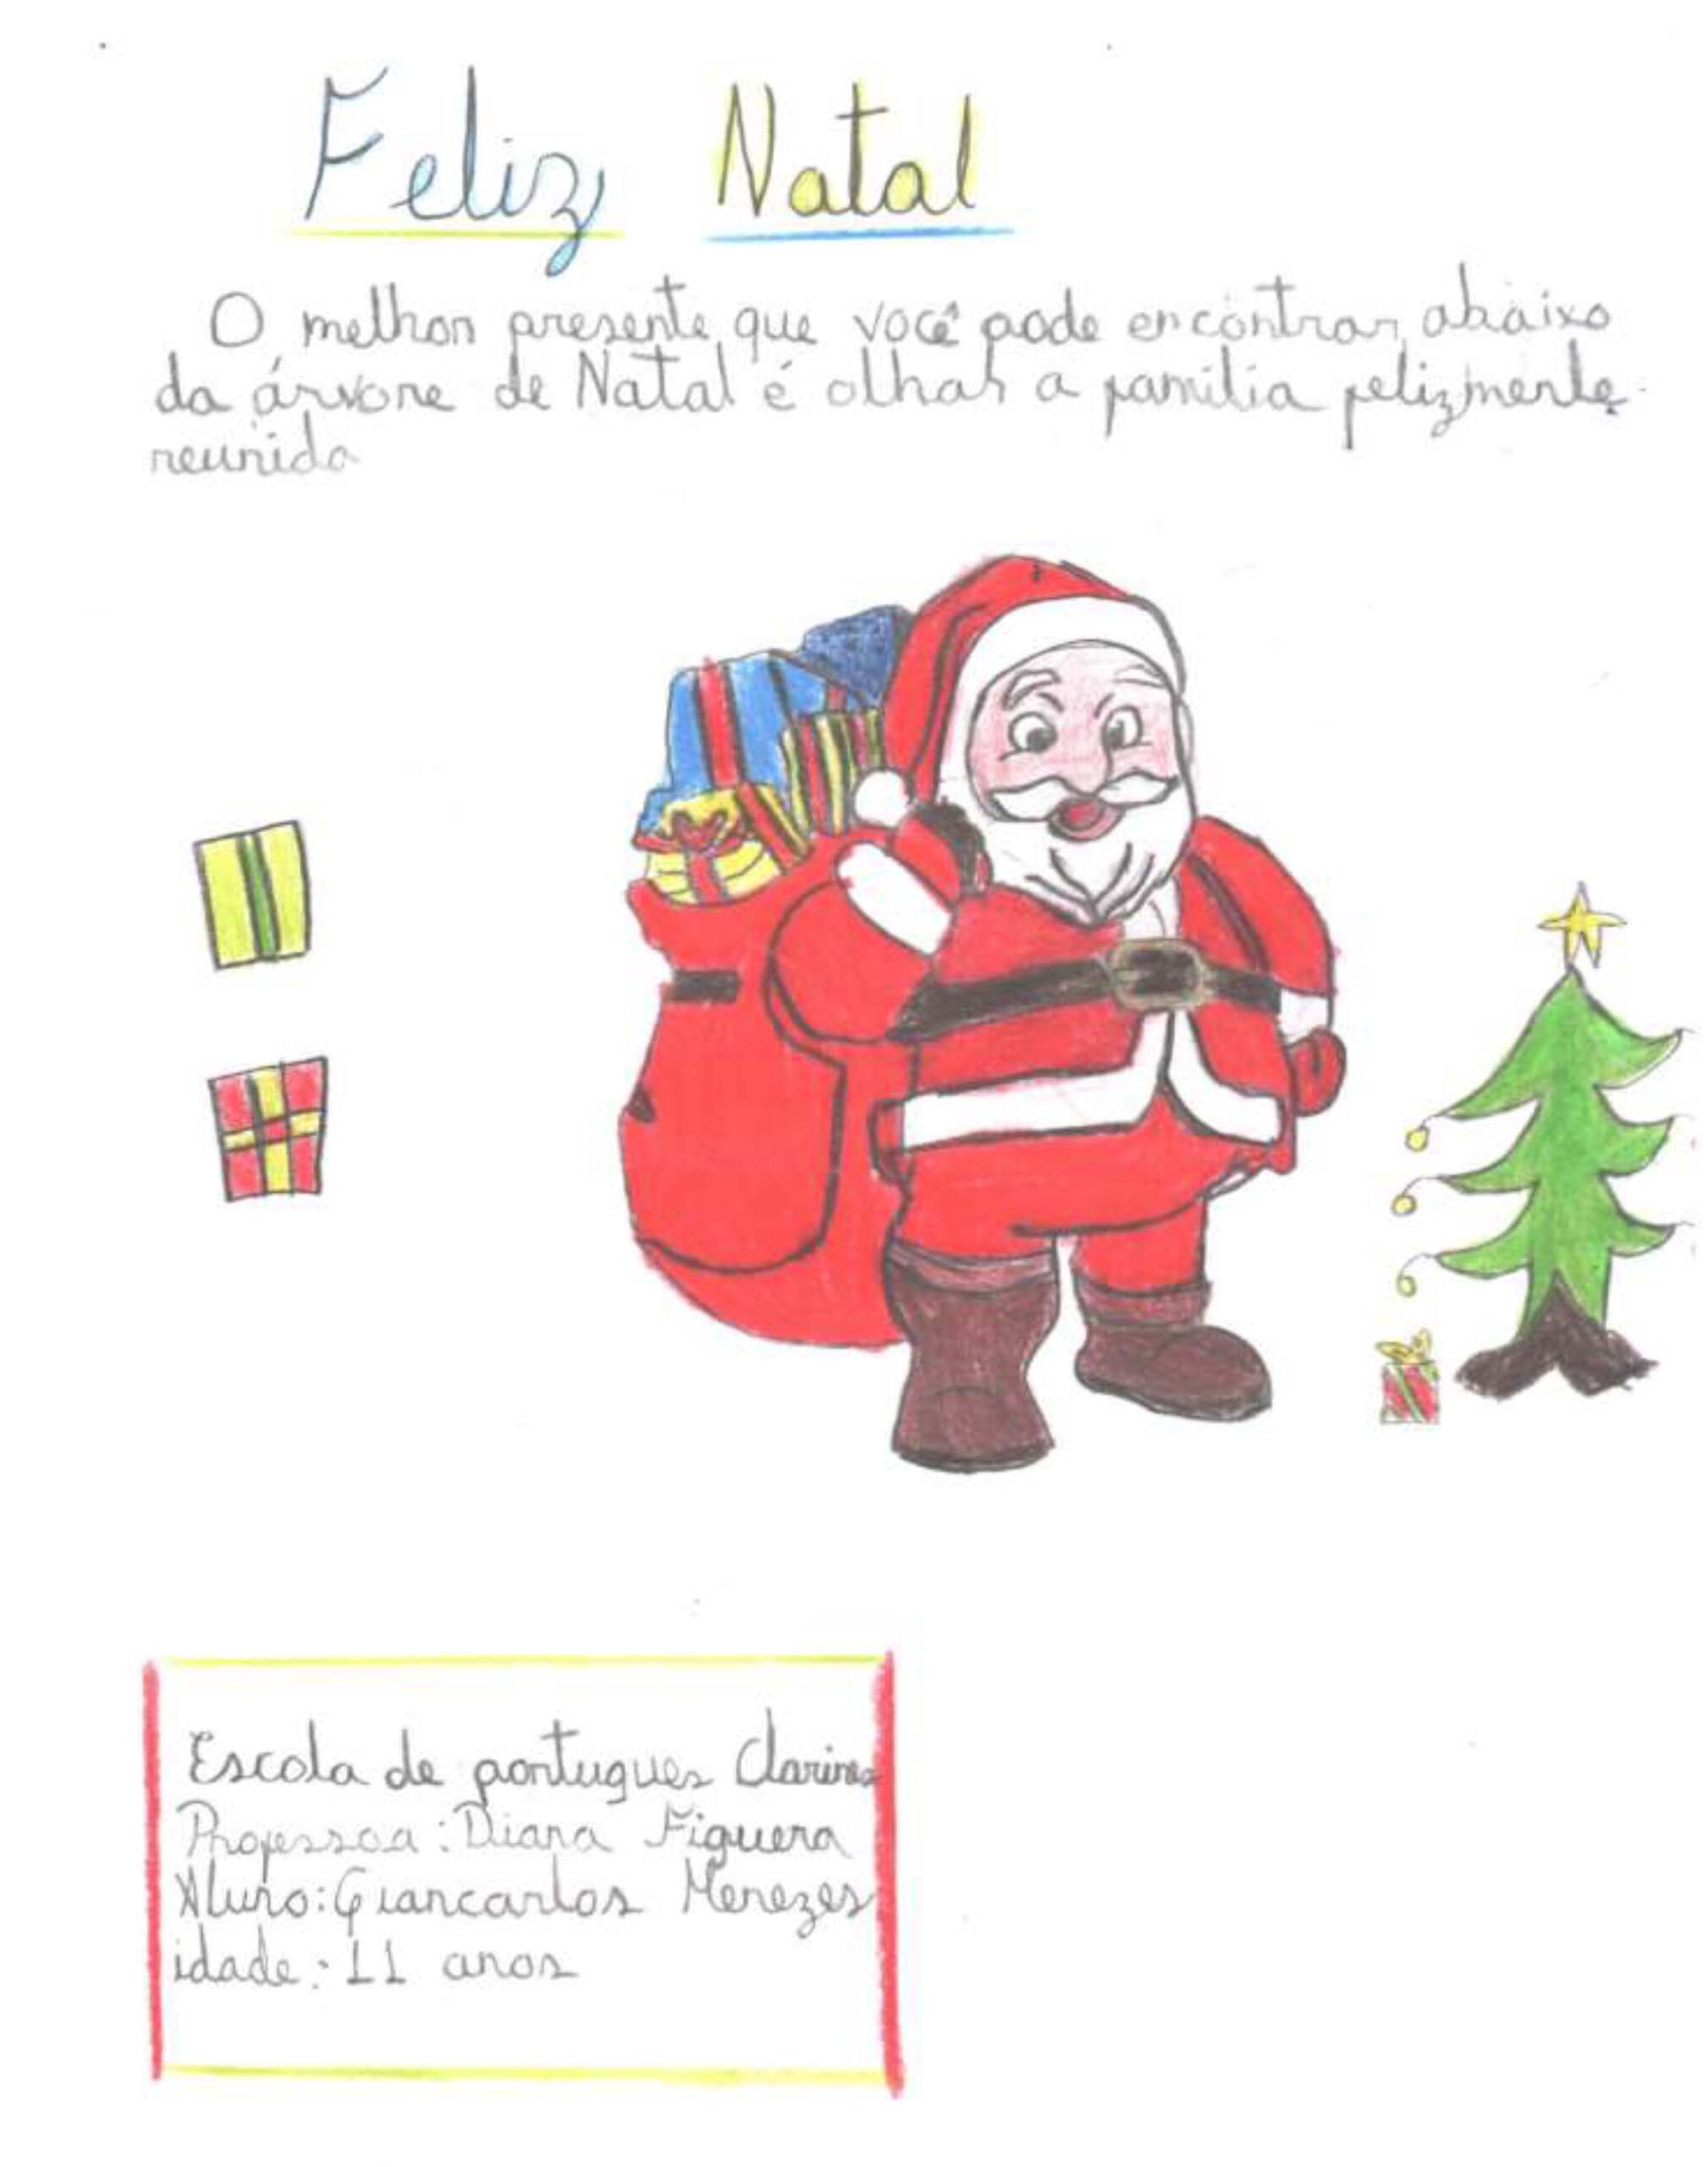 Feliz Natal
O melhor presente que você pode encontrar abaixo
da árvore de Natal é olhar a família felizmente
reunida
Escola de portugues Clarines
Professoa: Diana Figuera
Aluno: Giancarlos Menezes
idade: 11 anos